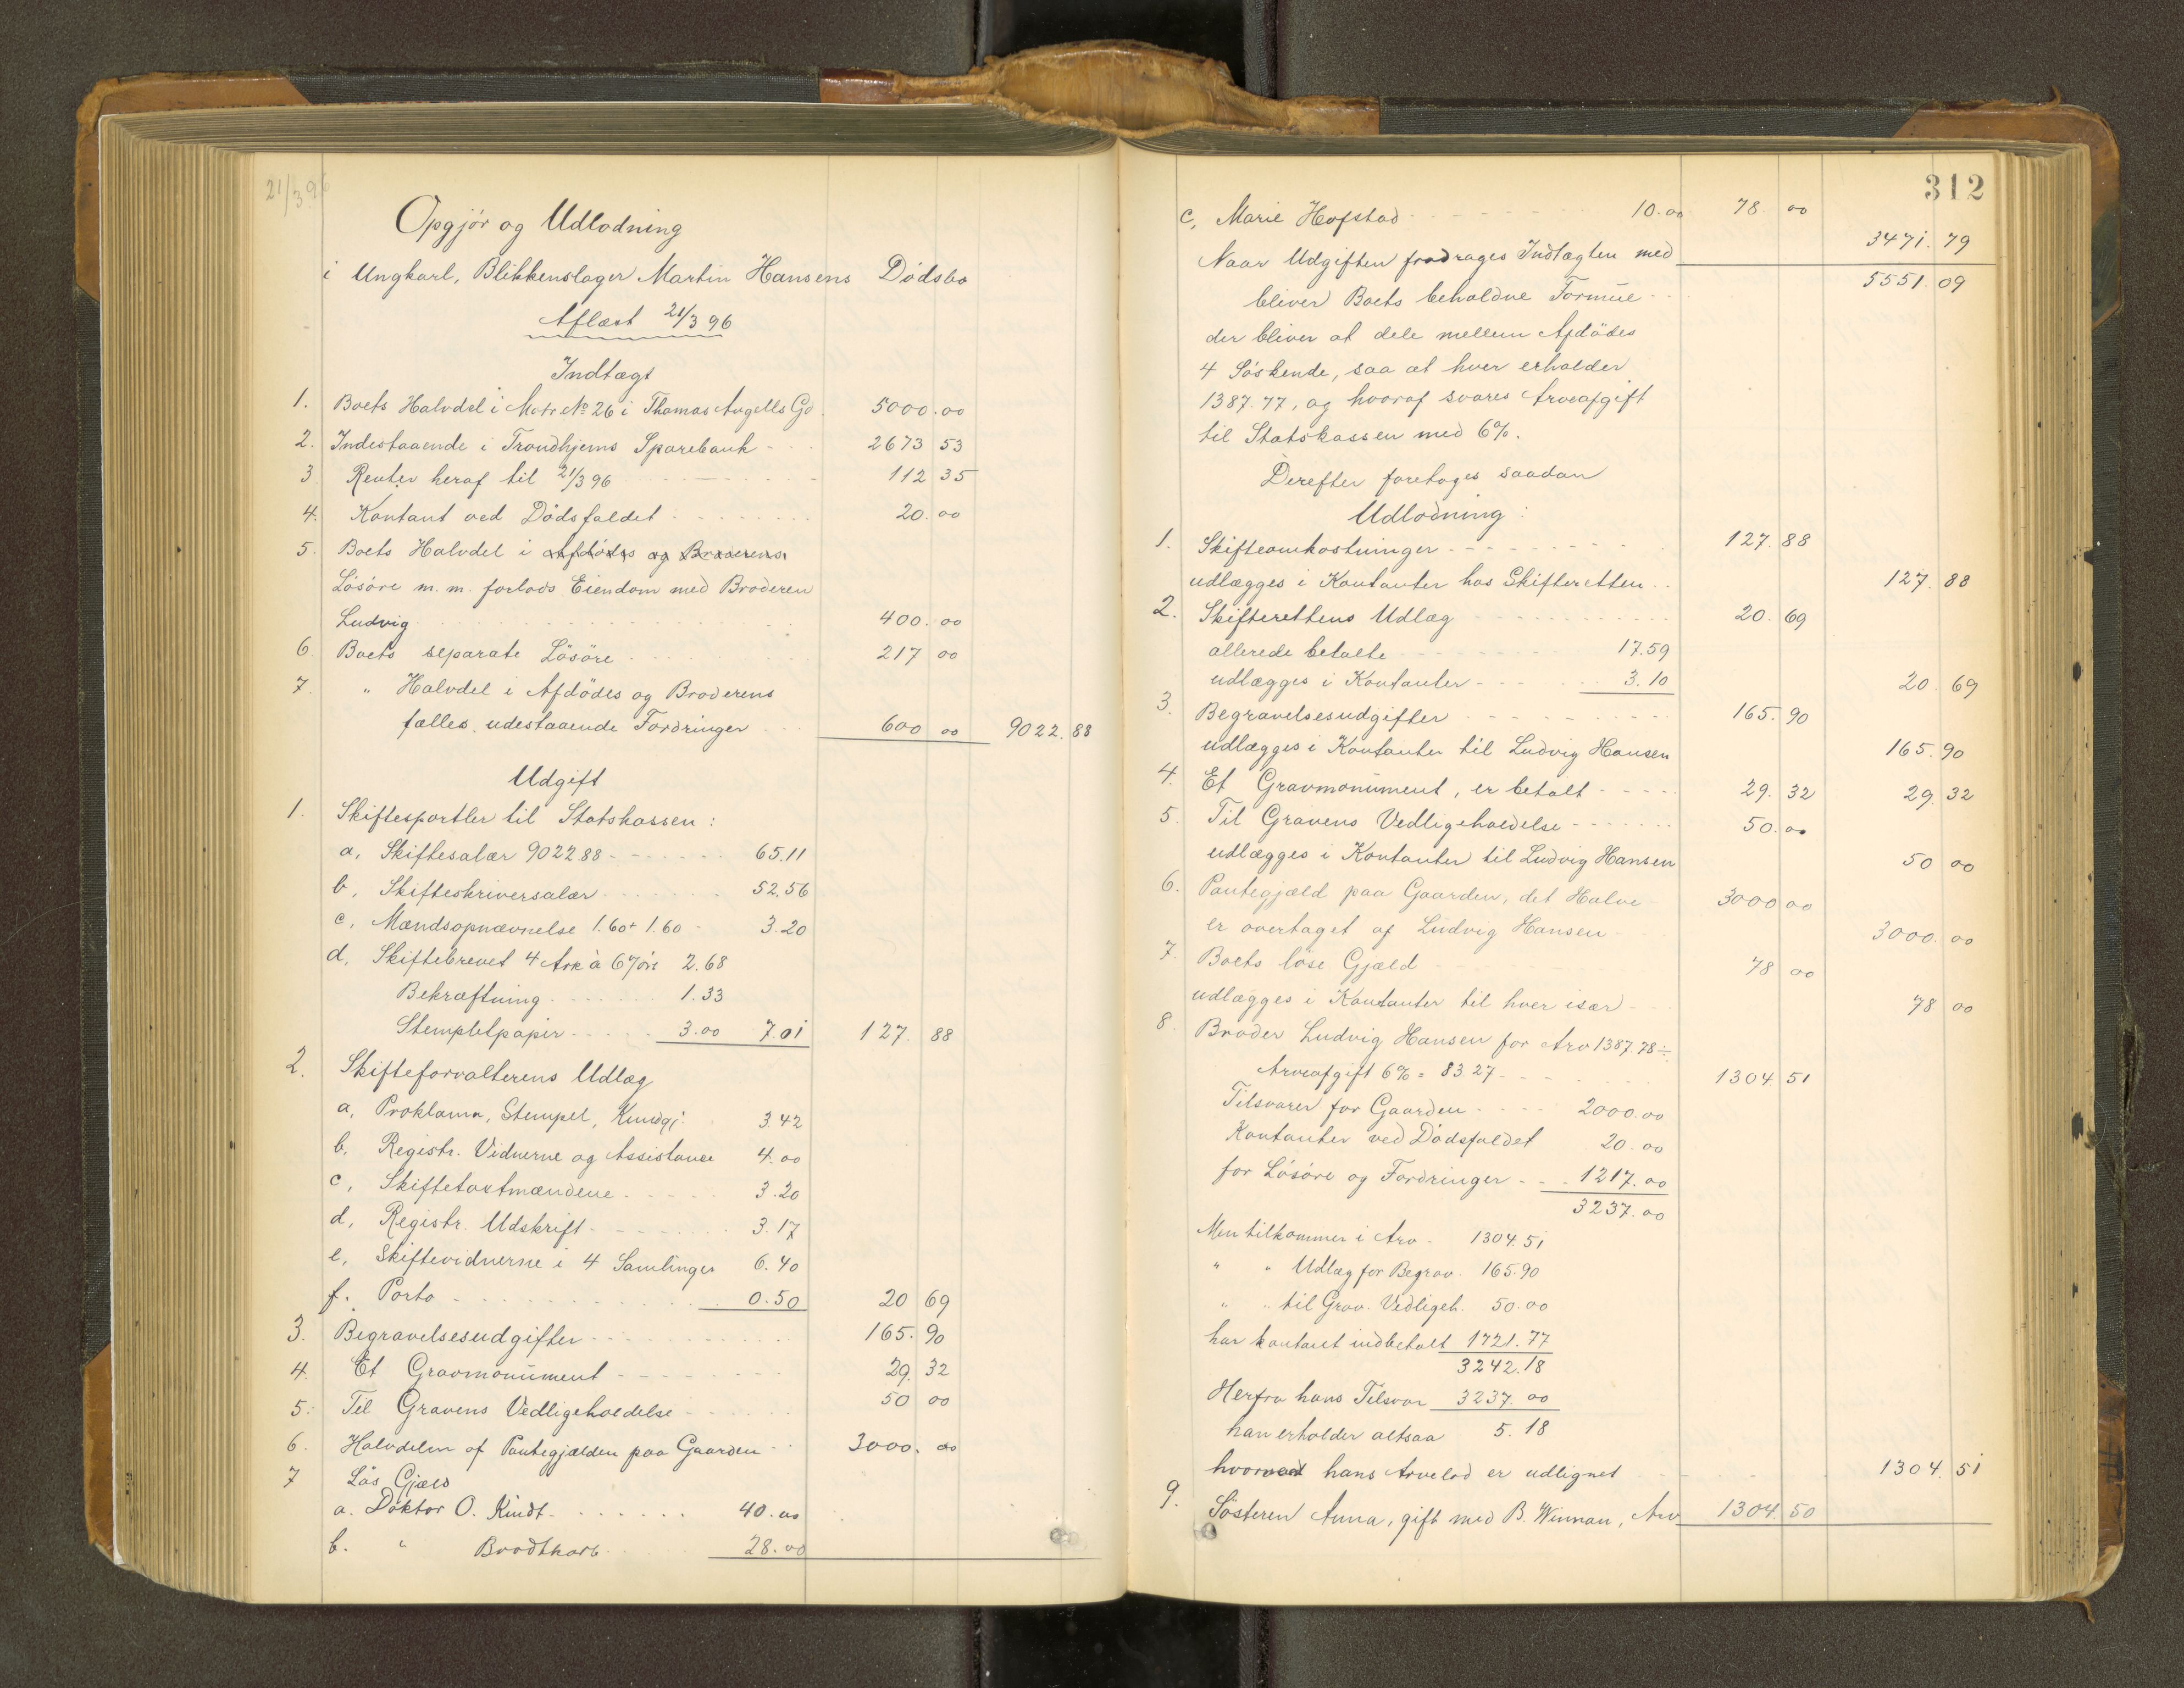 21/3 96
Opgjør og Udlodning
i Ungkarl, Blikkenslager Martin Hansens Dødsbo
Aflæst 21/3 96
Indtægt
1. Boets Halvdel i Matr. No 26 i Thomas Angells Gd. 5000.00
2. Indestaaende i Trondhjems Sparebank - 2673 53
3 Renter heraf til 21/3 96 112 35
4. Kontant ved Dødsfaldet 20.00
5. Boets Halvdel i Afdødes og Broderens
Løsøre m. m. forlods Eiendom med Broderen
Ludvig 400.00
6. Boets separate Løsøre 217 00
7. " Halvdel i Afdødes og Broderens
fælles udestaaende Fordringer 600 00 9022.88
Udgift
1. Skiftesportler til Statskassen:
a, Skiftesalær 9022.88 - 65.11
b, Skifteskriversalær 52.56
c, Mændsopnævnelse 1.60 + 1.60 - 3.20
d, Skiftebrevet 4 Ark à 67 øre 2.68
Bekræftning 1.33
Stempletpapir 3.00 7.01 127. 88
2. Skifteforvalterens Udlæg
a, Proklama, Stempel, Kundgj. 3.42
b, Registr. Vidnerne og Assistance 4.00
c, Skiftetaxtmændene 3.20
d, Registr. Udskrift 3.17
e, Skiftevidnerne i 4 Samlinger 6.40
f. Porto 0.50 20 69
3. Begravelsesudgifter 165. 90
4. Et Gravmonument 29. 32
5. Til Gravens Vedligeholdelse 50 00
6. Halvdelen af Pantegjælden paa Gaarden 3000. 00
7 Løs Gjæld
a. Doktor O. Kindt 40.00
b. " Brodtkorb 28.00
312
c, Marie Hofstad 10.00 78. 00
Naar Udgiften fradrages Indtægten med 3471. 79
bliver Boets beholdne Formue 5551. 09
der bliver at dele mellem Afdødes
4 Søskende, saa at hver erholder
1387.77, og hvoraf svares Arveafgift
til Statskassen med 6%.
Derefter foretages saadan
Udlodning:
1. Skifteomkostninger 127. 88
udlægges i Kontanter hos Skifteretten 127. 88
2. Skifterettens Udlæg 20. 69
allerede betalte 17.59
udlægges i Kontanter 3.10 20. 69
3. Begravelsesudgifter 165. 90
udlægges i Kontanter til Ludvig Hansen 165. 90
4. Et Gravmonument, er betalt 29. 32 29. 32
5. Til Gravens Vedligeholdelse 50.00
udlægges i Kontanter til Ludvig Hansen 50 00
6. Pantegjæld paa Gaarden, det Halve 3000 00
er overtaget af Ludvig Hansen 3000. 00
7. Boets løse Gjæld 78 00
udlægges i Kontanter til hver især 78 00
8. Broder Ludvig Hansen for Arv 1387.78 ÷
Arveafgift 6% = 83.27 1304. 51
Tilsvarer for Gaarden 2000.00
Kontanter ved Dødsfaldet 20.00
for Løsøre og Fordringer 1217.00
3237.00
Men tilkommer i Arv 1304.51
" " Udlæg for Begrav. 165.90
" " til Grav. Vedligeh. 50.00
har kontant indbetalt 1721.77
3242.18
Herfra hans Tilsvar 3237.00
han erholder altsaa 5.18
hvorved hans Arvelod er udlignet 1304. 51
9. Søsteren Anna, gift med B. Winnan, Arv 1304. 50